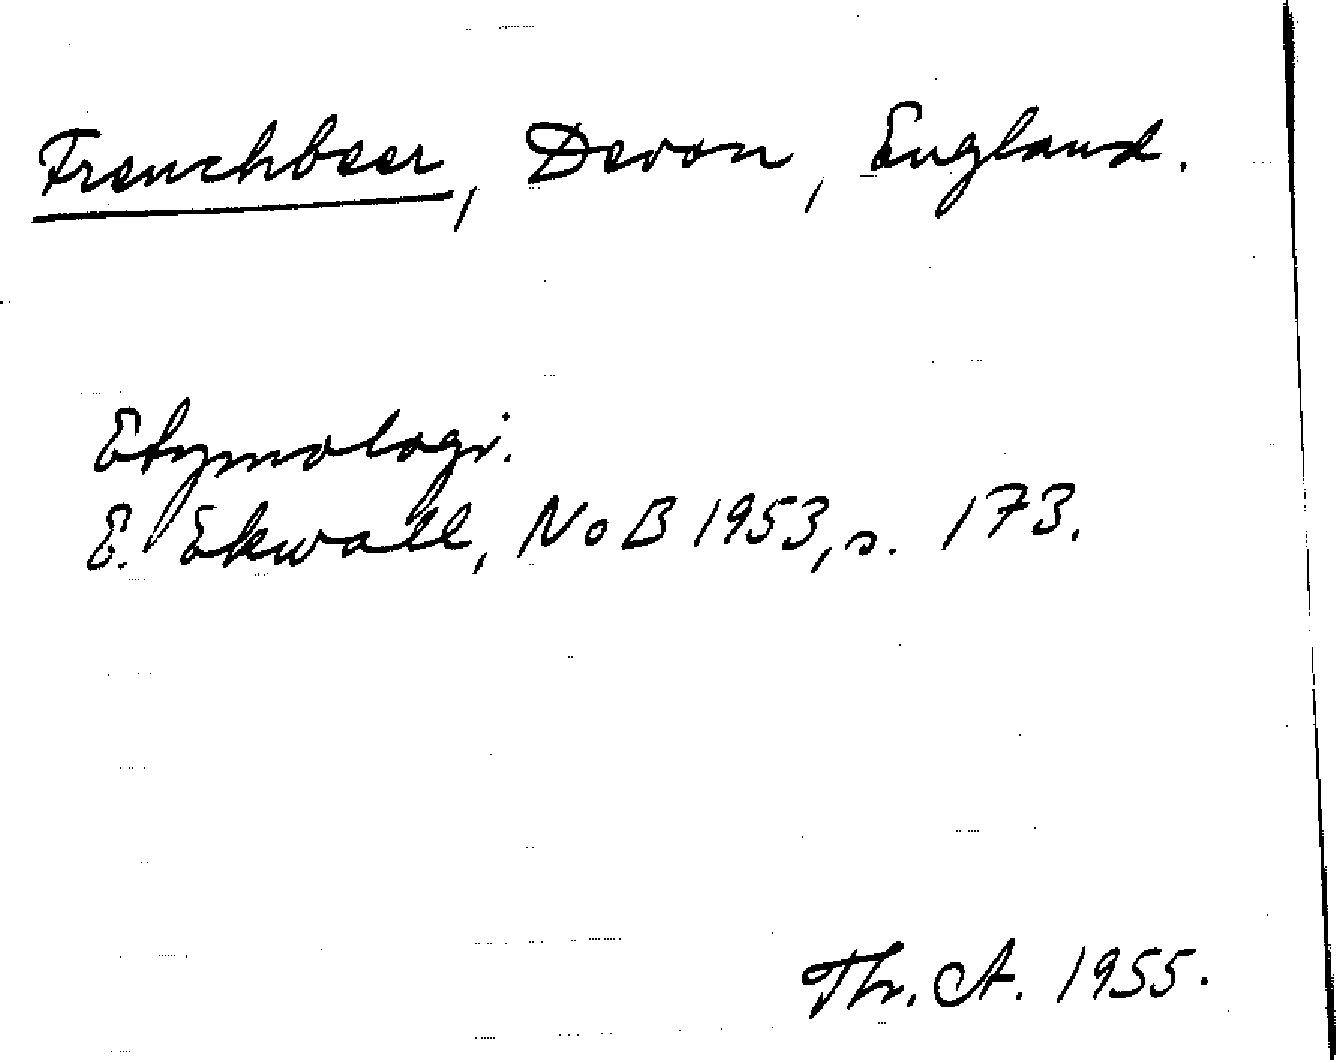 Frenchbeer, Devon, England.
Etymologi.
E. Ekwall, NoB 1953, s. 173.
Th. A. 1955.